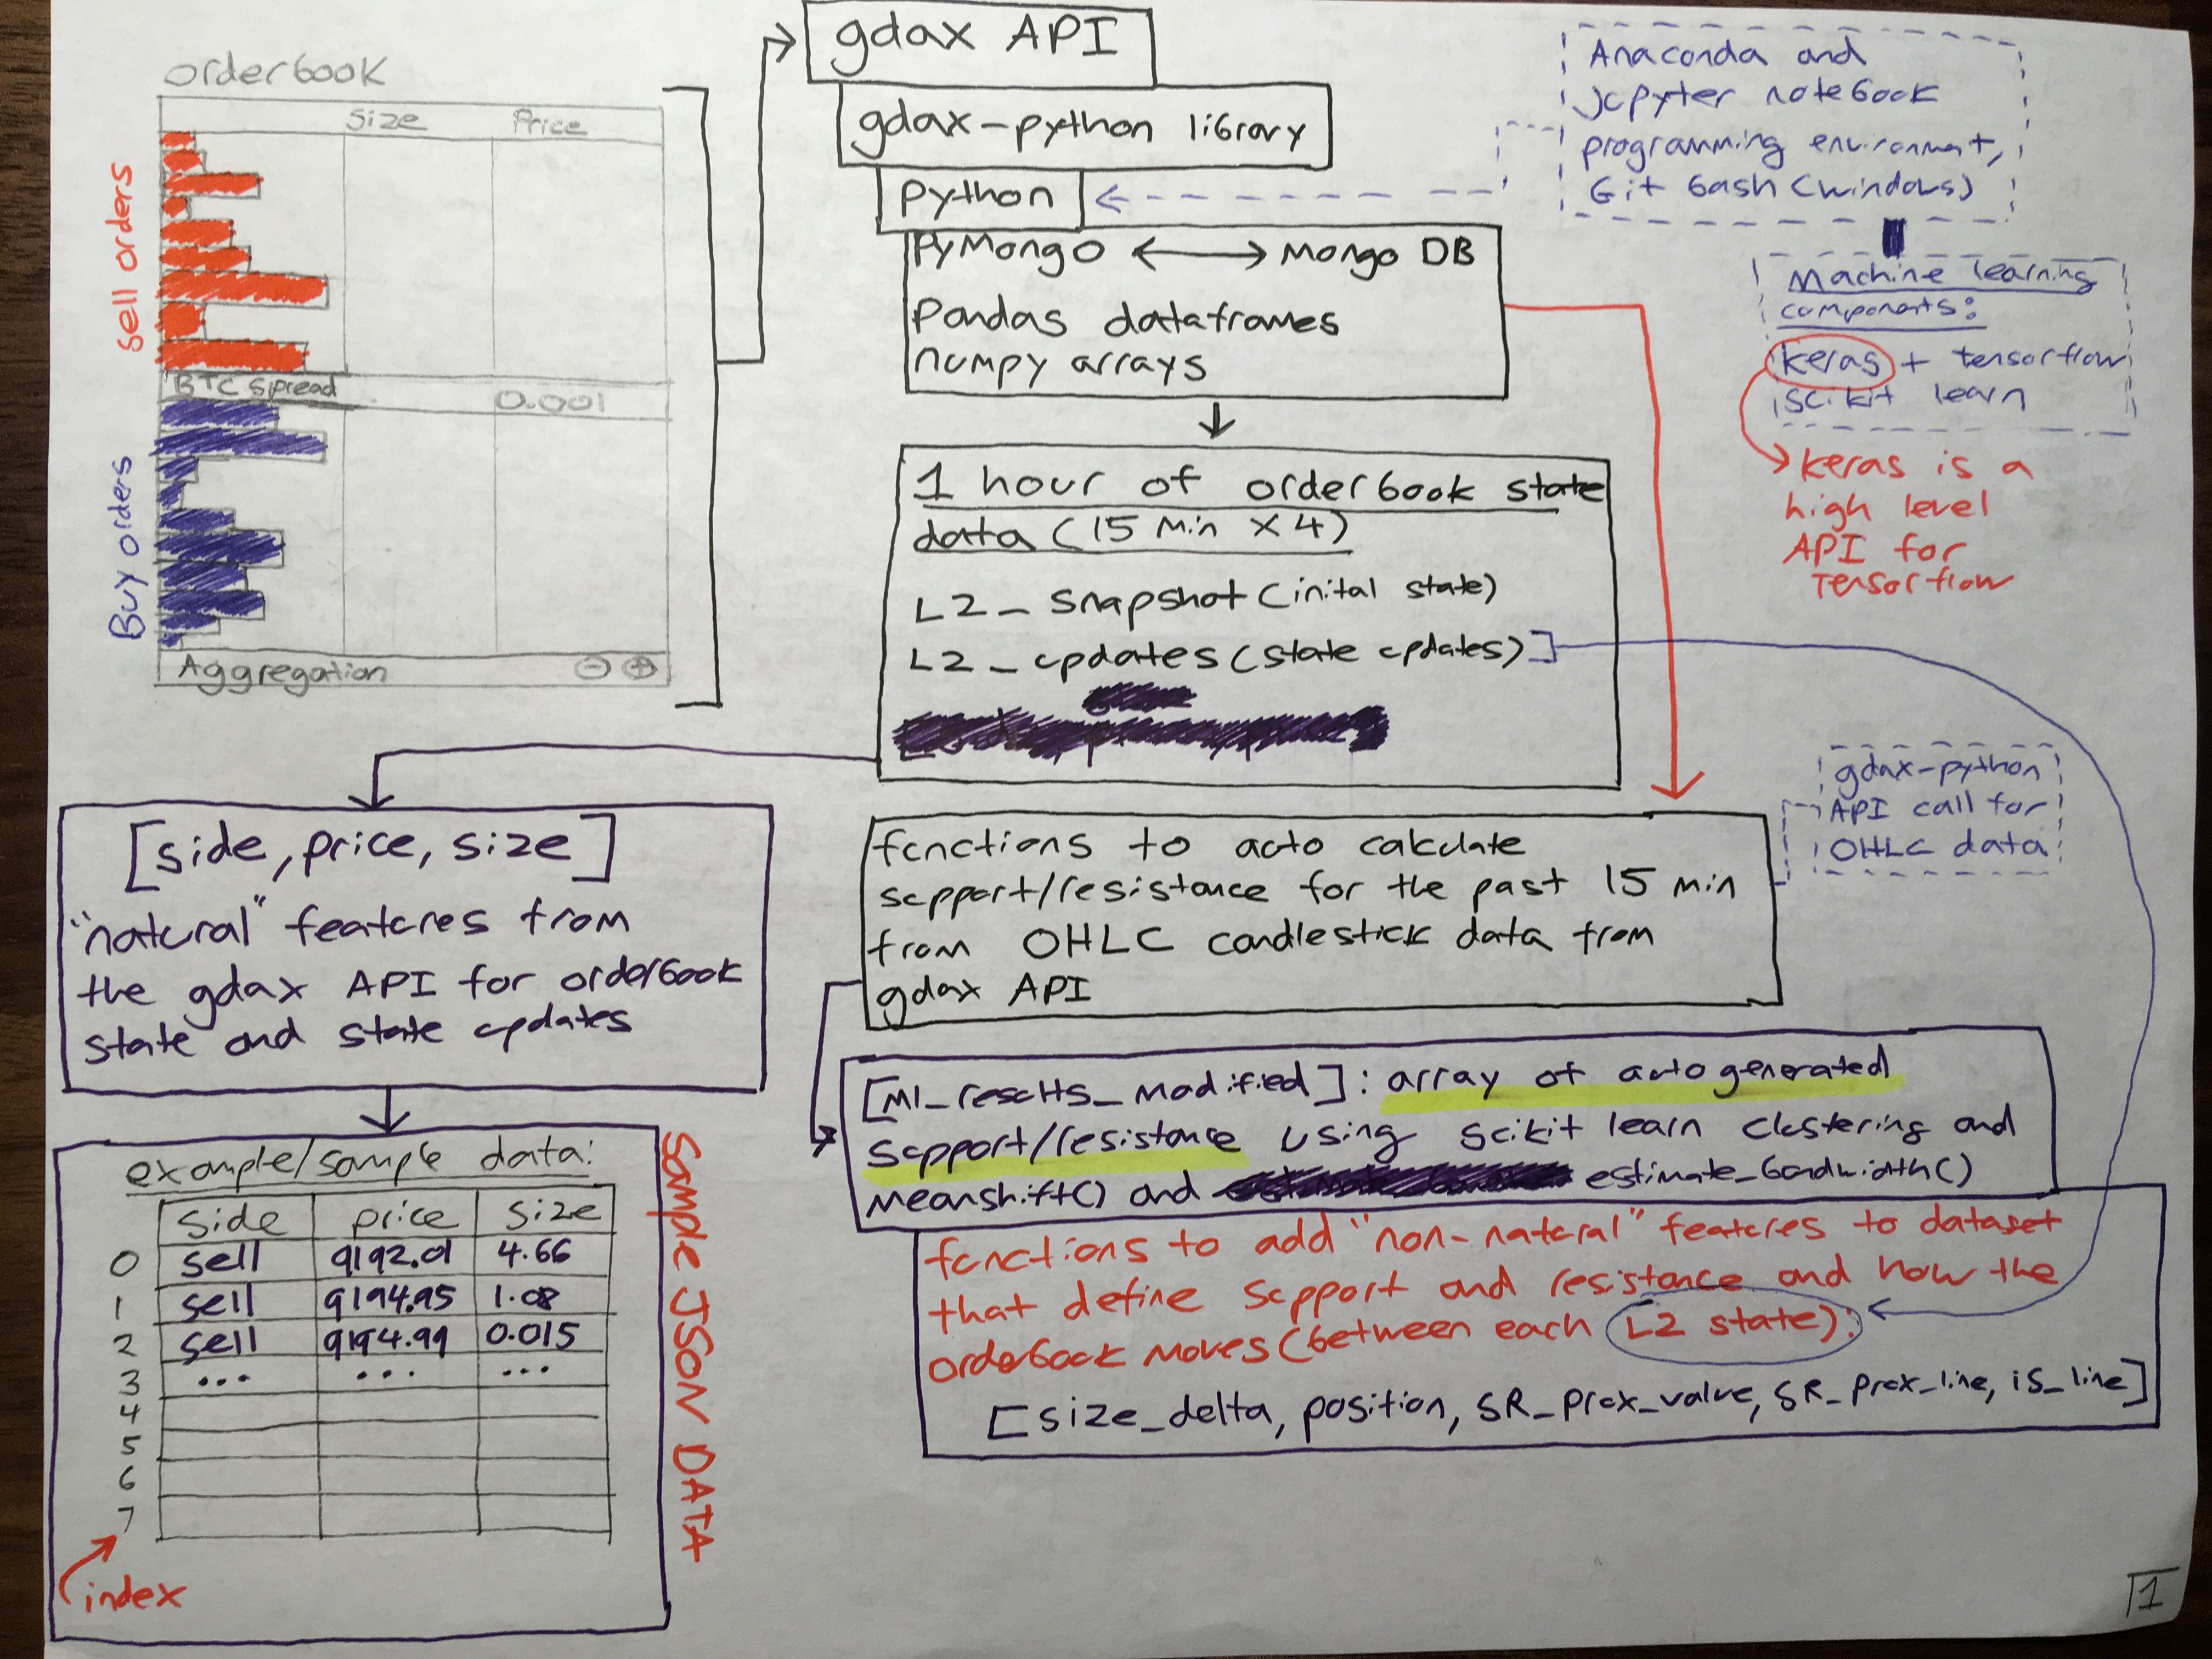 orderbook
Size Price
sell orders
BTC spread 0.001
Buy orders
Aggregation
gdax API
gdax-python library
python
PyMongo ⟷ Mongo DB
Pandas dataframes
numpy arrays
Anaconda and
jupyter notebook
programming environment,
Git bash (windows)
Machine learning
components:
keras + tensorflow
scikit learn
keras is a
high level
API for
Tensorflow
1 hour of orderbook state
data (15 min X 4)
L2_ snapshot (inital state)
L2_ updates (state updates)
[side, price, size]
"natural" features from
the gdax API for orderbook
state and state updates
gdax-python
API call for
OHLC data
functions to auto calculate
support/resistance for the past 15 min
from OHLC candlestick data from
gdax API
[Ml_results_modified]: array of autogenerated
support/resistance using scikit learn clustering and
meanshift() and estimate_bandwidth()
functions to add "non-natural" features to dataset
that define support and resistance and how the
orderbook moves (between each L2 state):
[size_delta, position, SR_prox_value, SR_prox_line, is_line]
example/sample data:
side price size
0 sell 9192.01 4.66
1 sell 9194.95 1.08
2 sell 9194.99 0.015
3 ... ... ...
4
5
6
7
index
SAMPLE JSON DATA
1